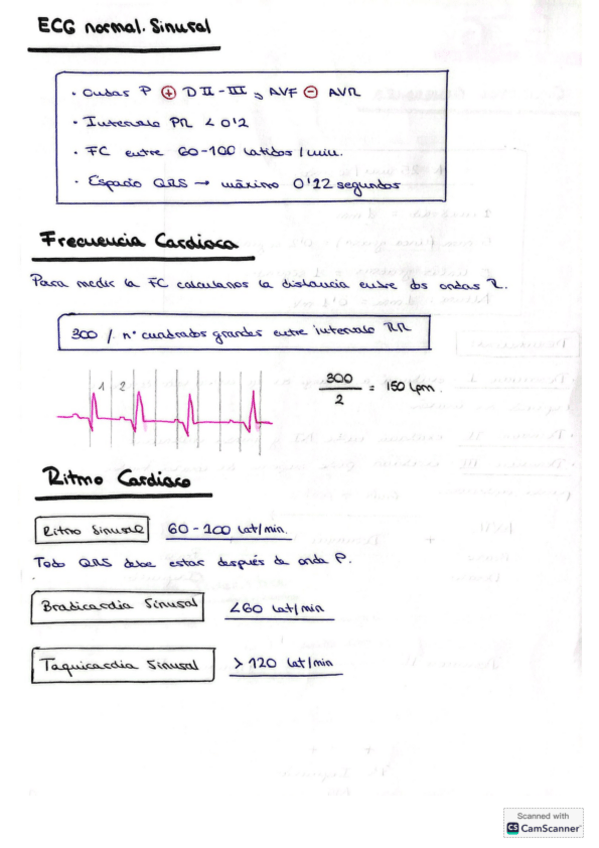 ECG normal. Sinusal
· Ondas P ⊕ D II - III y AVF ⊖ AVR
· Intervalo PR < 0'2
· FC entre 60-100 latidos / min.
· Espacio QRS → máximo 0'12 segundos
Frecuencia Cardiaca
Para medir la FC calculamos la distancia entre dos ondas R.
300 /. nº cuadrados grandes entre intervalo RR
1 2
300
2
= 150 lpm.
Ritmo Cardiaco
Ritmo Sinusal 60 - 100 lat/min.
Todo QRS debe estar después de onda P.
Bradicardia Sinusal <60 lat/min
Taquicardia Sinusal > 120 lat/min
Scanned with
CS CamScanner